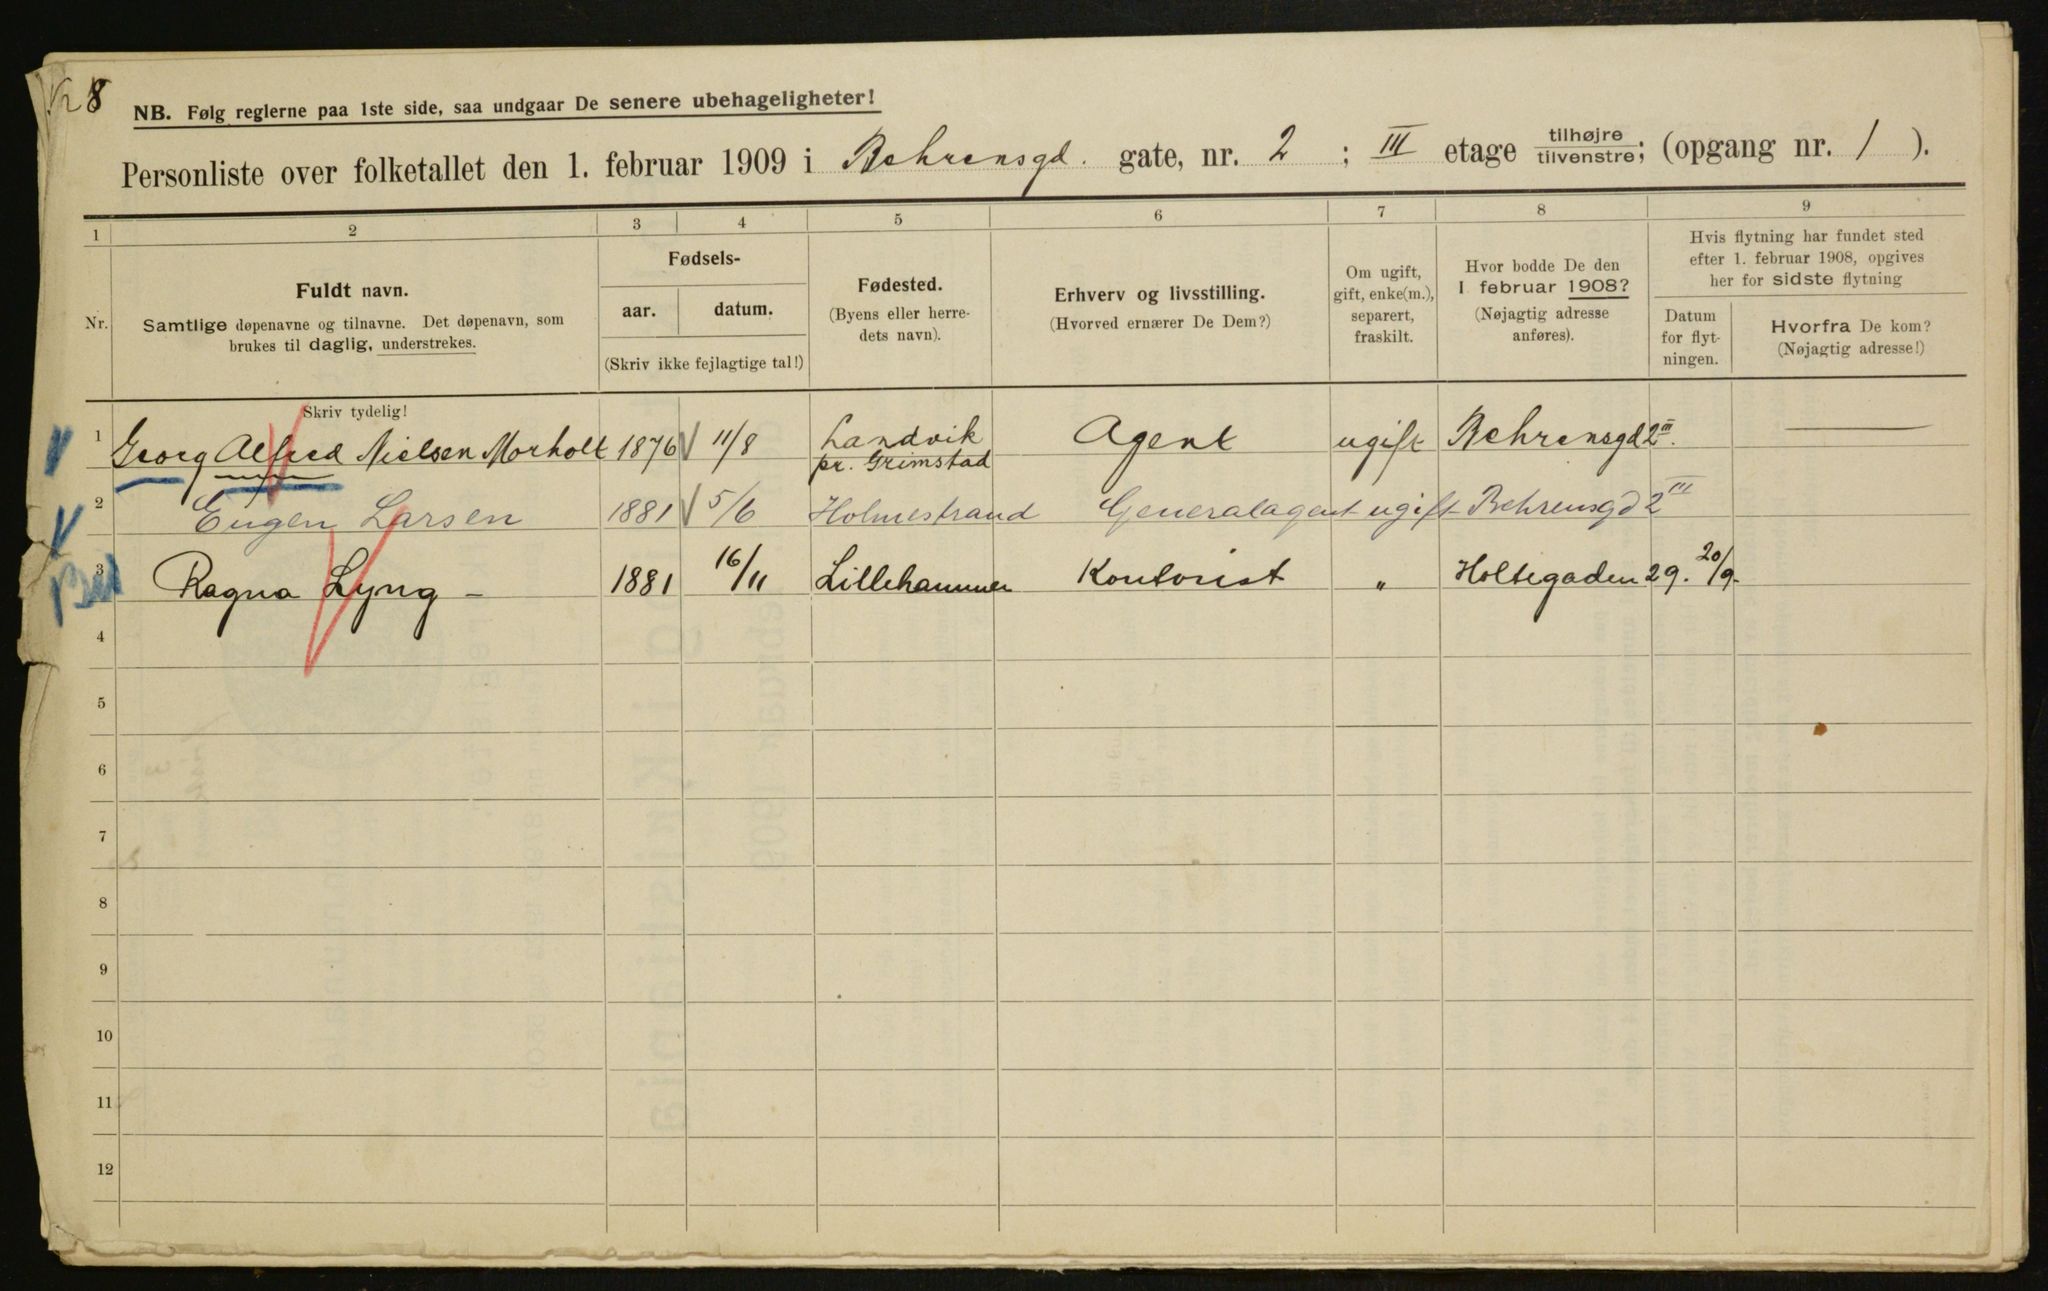 Nr 8
NB. Følg reglerne paa 1ste side, saa undgaar De senere ubehageligheter!
Personliste over folketallet den 1. februar 1909 i Behrensgd. gate, nr. 2 ; III etage tilhøjre/tilvenstre; (opgang nr. 1 ).
1 2 3 4 5 6 7 8 9
Nr.
Fuldt navn.
Samtlige døpenavne og tilnavne. Det døpenavn, som
brukes til daglig, understrekes.
Fødsels-
aar. datum.
(Skriv ikke fejlagtige tal!)
Fødested.
(Byens eller herre-
dets navn).
Erhverv og livsstilling.
(Hvorved ernærer De Dem?)
Om ugift,
gift, enke(m.),
separert,
fraskilt.
Hvor bodde De den
1 februar 1908?
(Nøjagtig adresse
anføres).
Hvis flytning har fundet sted
efter 1. februar 1908, opgives
her for sidste flytning
Datum
for flyt-
ningen.
Hvorfra De kom?
(Nøjagtig adresse!)
Skriv tydelig!
1 Georg Alfred Nielsen Morholt 1876 11/8 Landvik pr. Grimstad Agent ugift Behrensgd 2 III.
2 Eugen Larsen 1881 5/6 Holmestrand Generalagent ugift Behrensgd 2 III
3 Ragna Lyng - 1881 16/11 Lillehammer Kontorist " Holtegaden 29. 20/9.
4
5
6
7
8
9
10
11
12